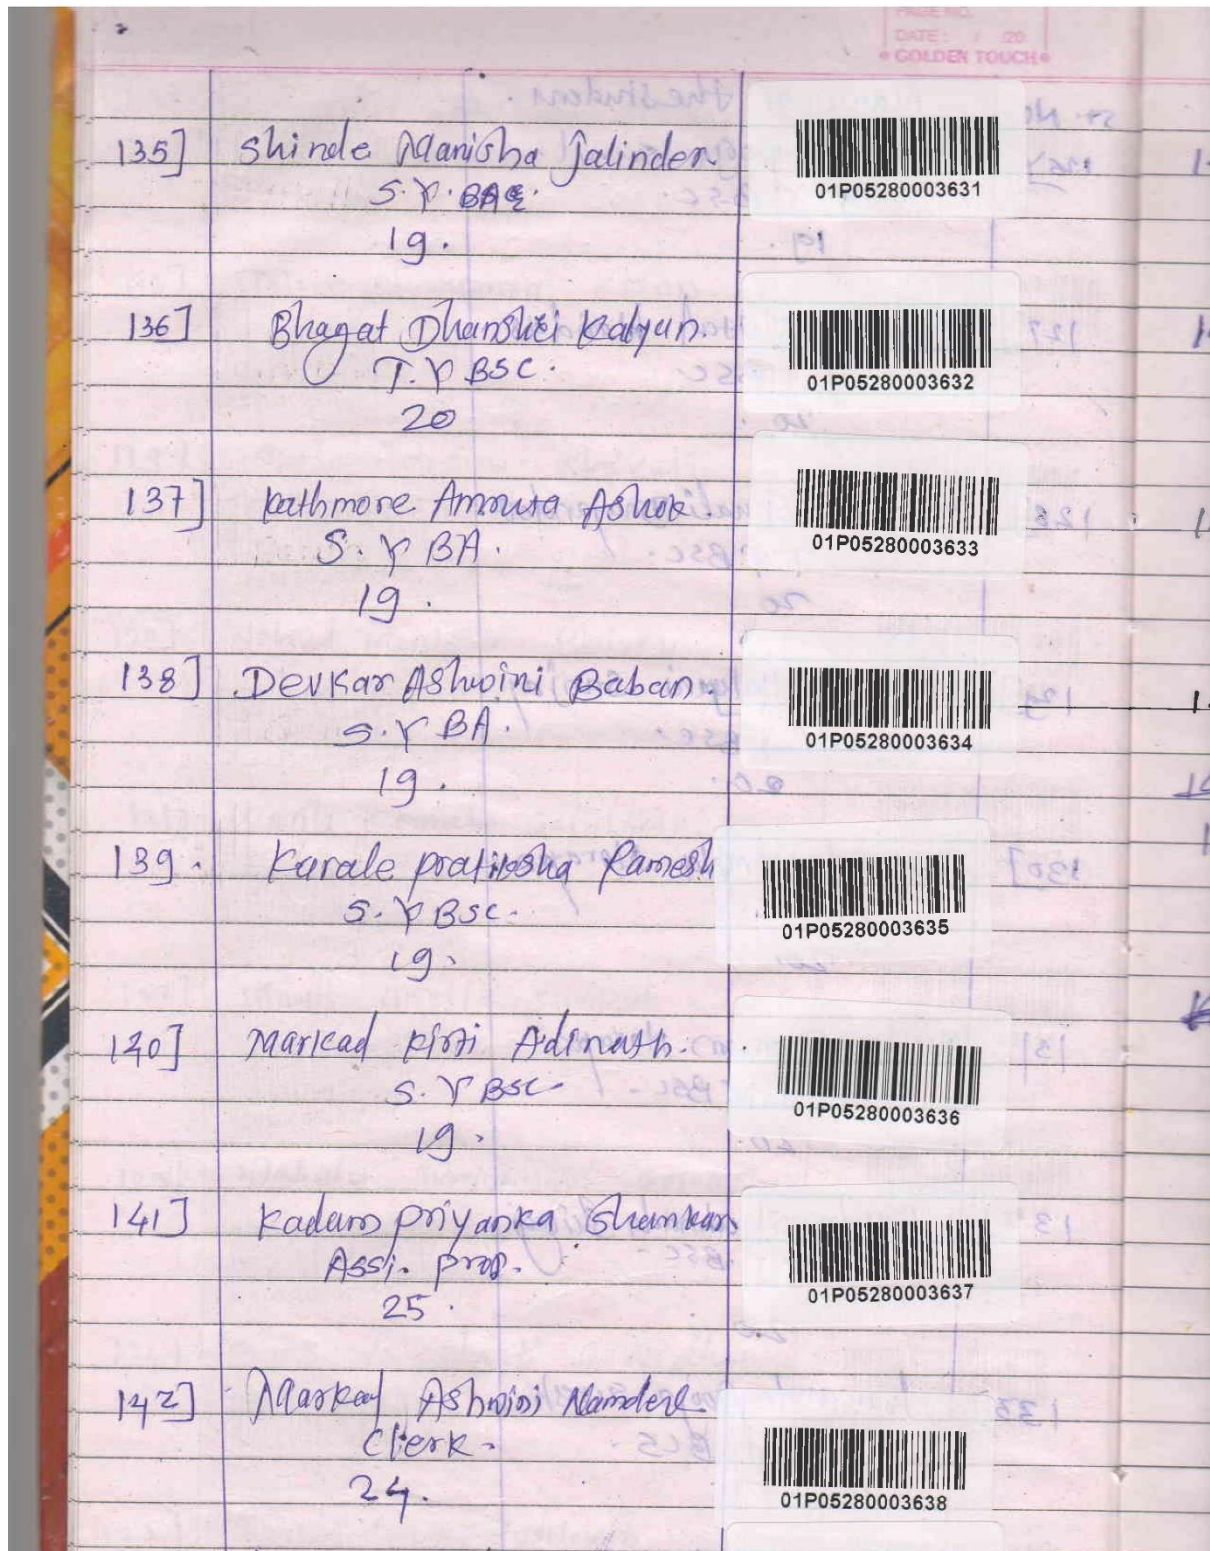 PAGE NO.
DATE: / /20
GOLDEN TOUCH
135] Shinde Manisha Jalinder.
01P05280003631
S.Y.
19.
136] Bhagat Dhanshri Kalyan.
T.Y BSC.
01P05280003632
20
137] Kathmore Amruta Ashok
S.Y BA.
01P05280003633
19.
138] Devkar Ashwini Baban.
S.Y BA.
01P05280003634
19.
139. Karale Ramesh
S.Y BSC.
01P05280003635
19.
140] Markad Kirti Adinath.
S.Y BSC
01P05280003636
19.
141] Kadam Priyanka Shankar
Assi. prop.
01P05280003637
25.
142] Ashwini
Clerk.
24.
01P05280003638